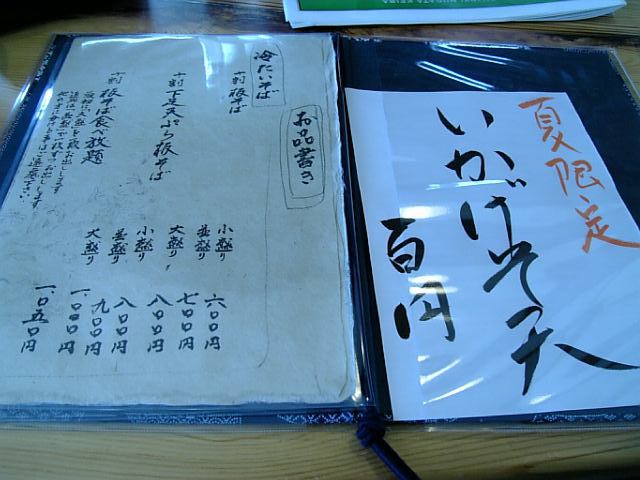 夏限定
いかげそ天
百円
お品書き
冷たいそば
十割 板そば
小盛り 六〇〇円
並盛り 七〇〇円
大盛り 八〇〇円
十割 下足天ぷら板そば
小盛り 八〇〇円
並盛り 九〇〇円
大盛り 一、〇〇〇円
十割 板そば食べ放題
一、〇五〇円